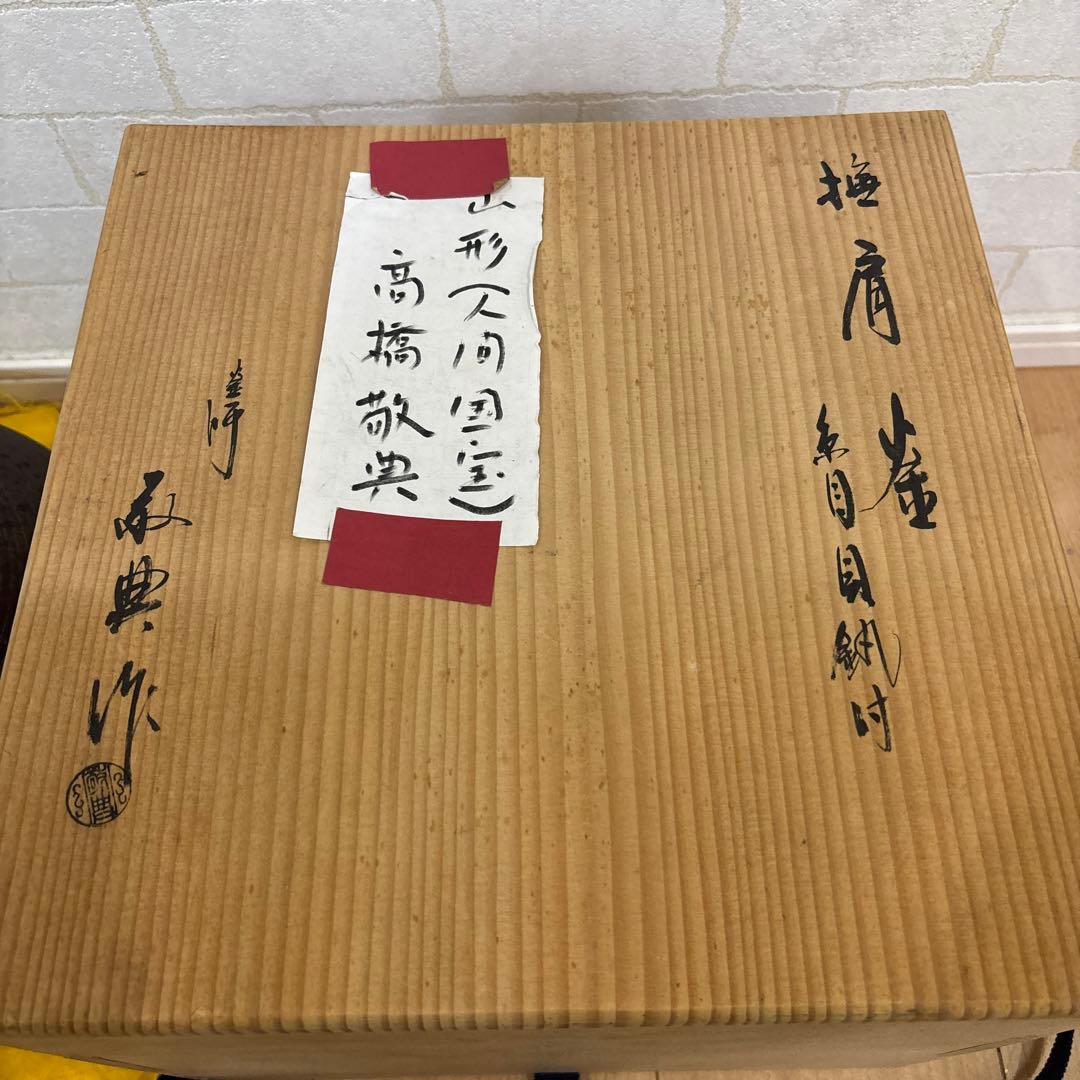 撫肩釜
糸目貝鐶付
山形(人间国宝)
高橋敬典
釜師
敬典作
敬典